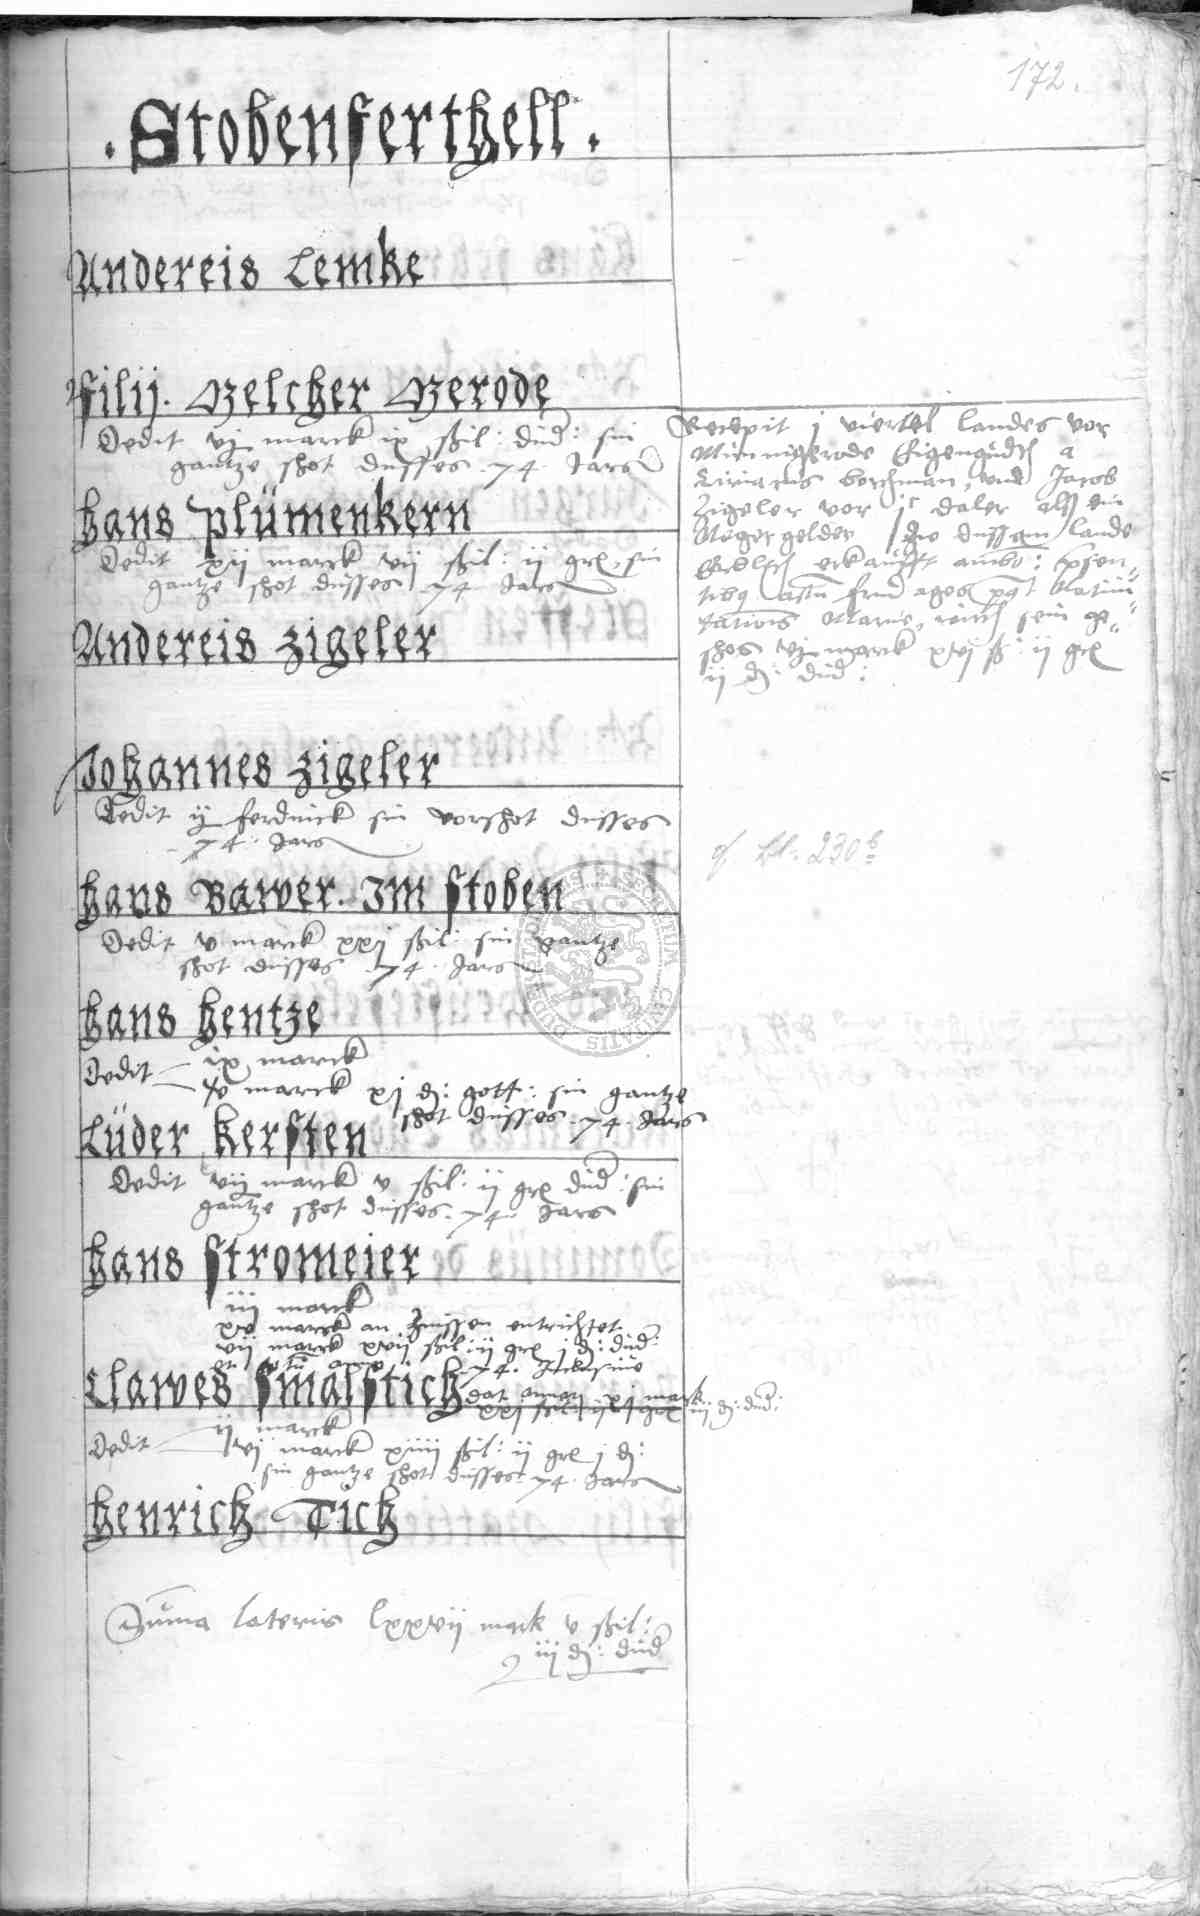 172.
. Stobenferthell .
Andereis Lemke
Filij. Melcher Merode
Dedit vj marck ix ßil: dud: sin
gantze shot dusses .74. Jars
Hans Plümenkern
Dedit xij marck vij ßil: ij gr sin
gantze shot dusses .74. Jars
Andereis Zigeler
Johannes Zigeler
Dedit ij ferdinck sin vorshot dusses
.74. Jars
Hans Bawer. Im Stoben
Dedit v marck xxj ßil: sin gantze
shot dusses .74. Jars
Hans Hentze
Dedit ix marck
v marck xj d: gott: sin gantze
shot dusses .74. Jars
Lüder Kersten
Dedit vij marck v ßil: ij gr dud: sin
gantze shot dusses .74. Jars
Hans Stromeier
iij marck
xv marck an Zinssen entrichtet
vij marck xvij ßil: ij gr j d: dud:
.74.
Clawes Smalstich
xj mark
xxj ßil: gr iij d: dud:
Dedit ij marck
vj marck xiiij ßil: ij gr j d:
sin gantze shot dusses .74. Jars
Henrich Tich
Suma lateris lxxvij mark v ßil:
iij d: dud
Recepit j viertel landes vor
Minnigerode a
Ciriacus borchman, und Jacob
Zigeler vor jc daler alß ein
Neger gelder die dussem lande
erkaufft
Marie, sein ge-
shos vj marck xvj ß: ij gr
ij d: dud:
cf. bl. 230b